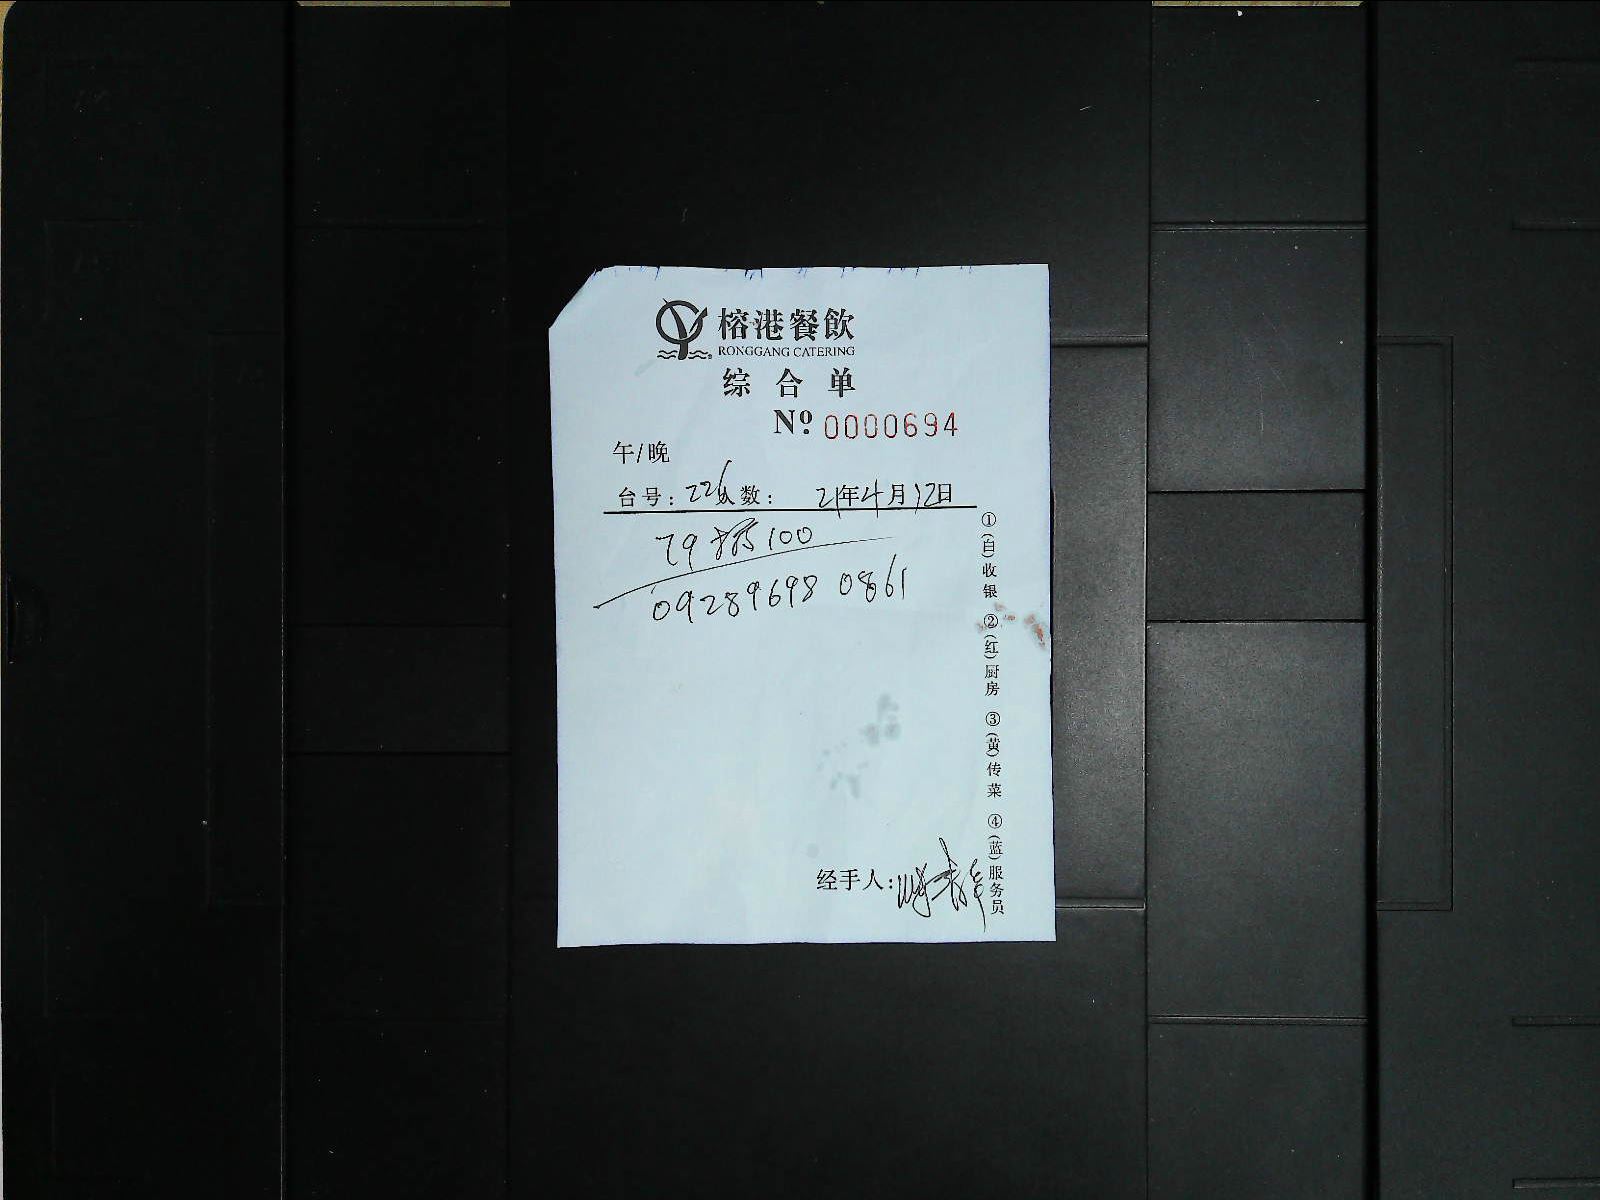 榕港餐飲
RONGGANG CATERING
综合单
Nº 0000694
午/晚
台号: 226 人数: 21年4月12日
79 100
092896980861
①(自)收银 ②(红)厨房 ③(黄)传菜 ④(蓝)服务员
经手人: